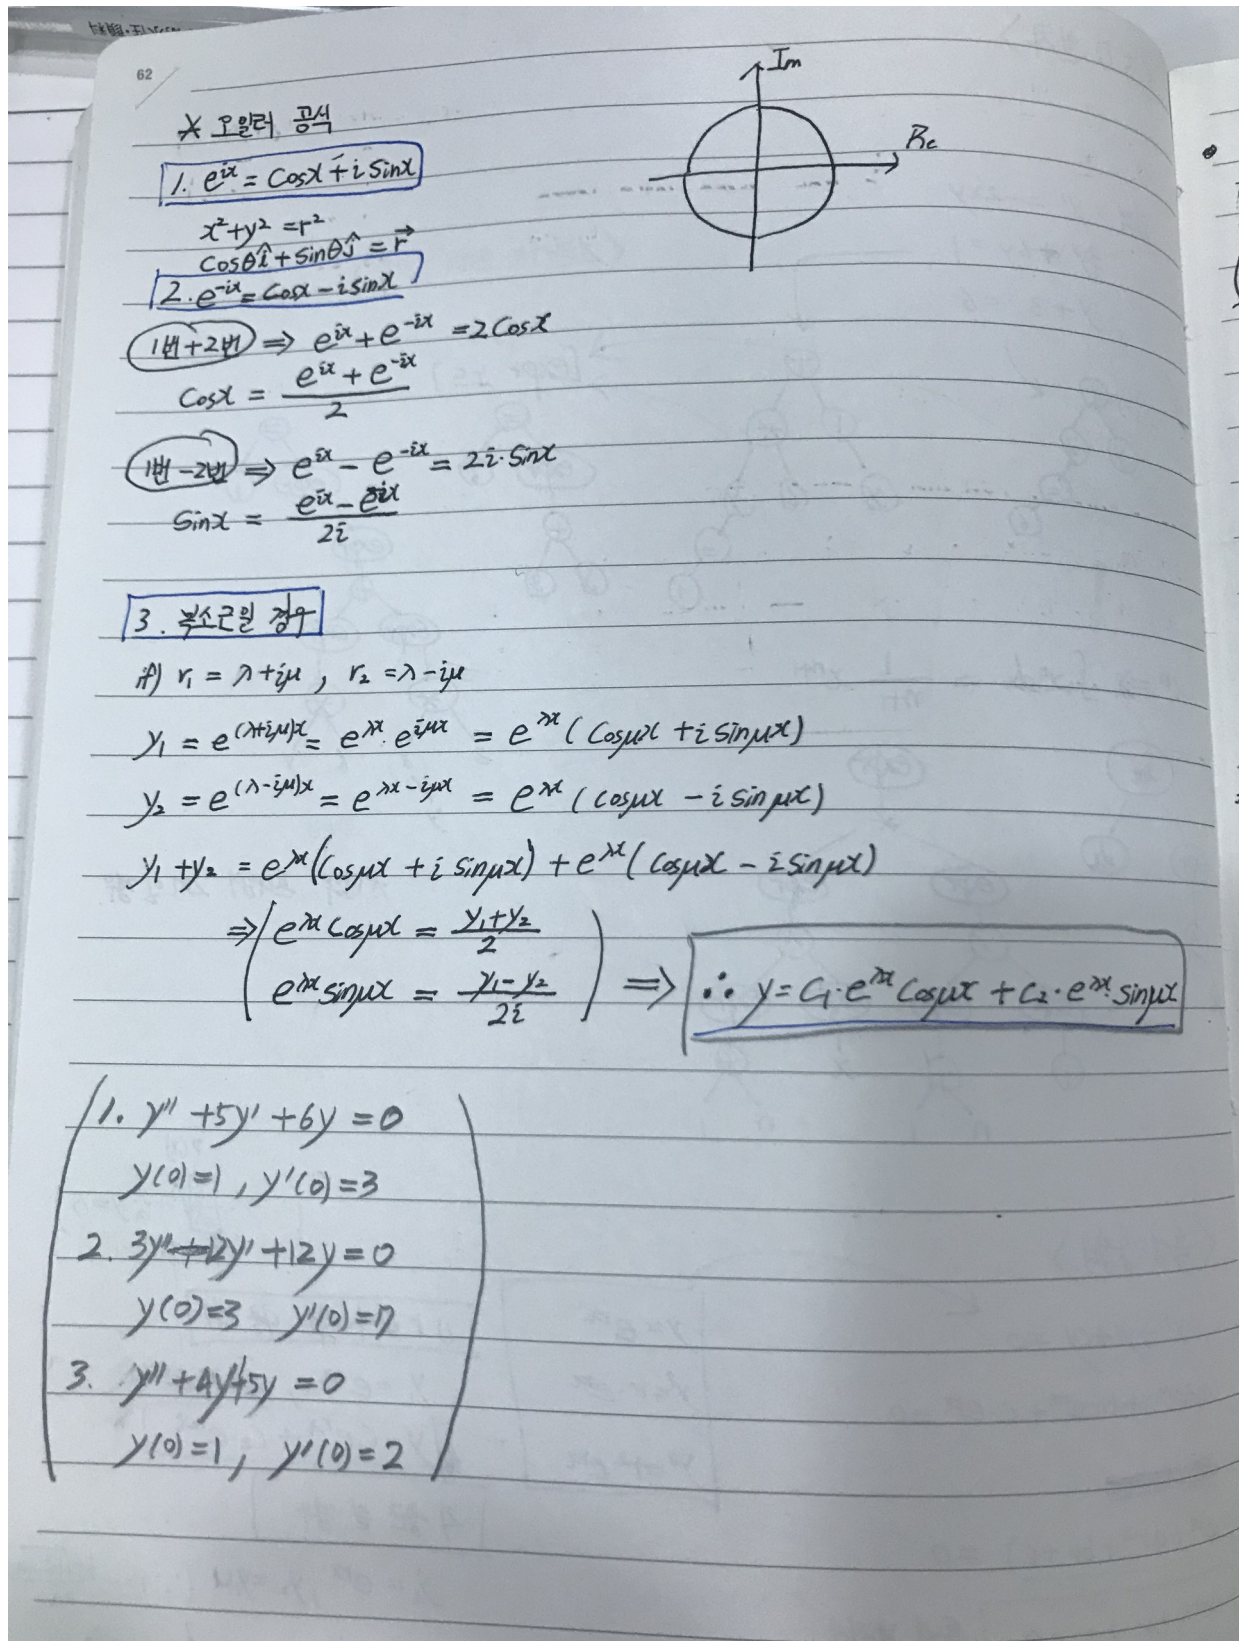 62
* 오일러 공식
1. e^{ix} = cosx + i sinx
x²+y² = r²
cosθî + sinθĵ = r⃗
2. e^{-ix} = cosx - i sinx
1번+2번 ⇒ e^{ix} + e^{-ix} = 2cosx
cosx = \frac{e^{ix} + e^{-ix}}{2}
1번-2번 ⇒ e^{ix} - e^{-ix} = 2i·sinx
sinx = \frac{e^{ix} - e^{-ix}}{2i}
Im
Re
3. 복소근일 경우
if) r₁ = λ+iμ, r₂ = λ-iμ
y₁ = e^{(λ+iμ)x} = e^{λx}·e^{iμx} = e^{λx}(cosμx + i sinμx)
y₂ = e^{(λ-iμ)x} = e^{λx-iμx} = e^{λx}(cosμx - i sinμx)
y₁+y₂ = e^{λx}(cosμx + i sinμx) + e^{λx}(cosμx - i sinμx)
⇒ e^{λx}cosμx = \frac{y₁+y₂}{2}
e^{λx}sinμx = \frac{y₁-y₂}{2i}
⇒ ∴ y = C₁·e^{λx}cosμx + C₂·e^{λx}·sinμx
1. y'' + 5y' + 6y = 0
y(0)=1, y'(0)=3
2. 3y''-12y'+12y=0
y(0)=3 y'(0)=17
3. y''+4y'+5y=0
y(0)=1, y'(0)=2